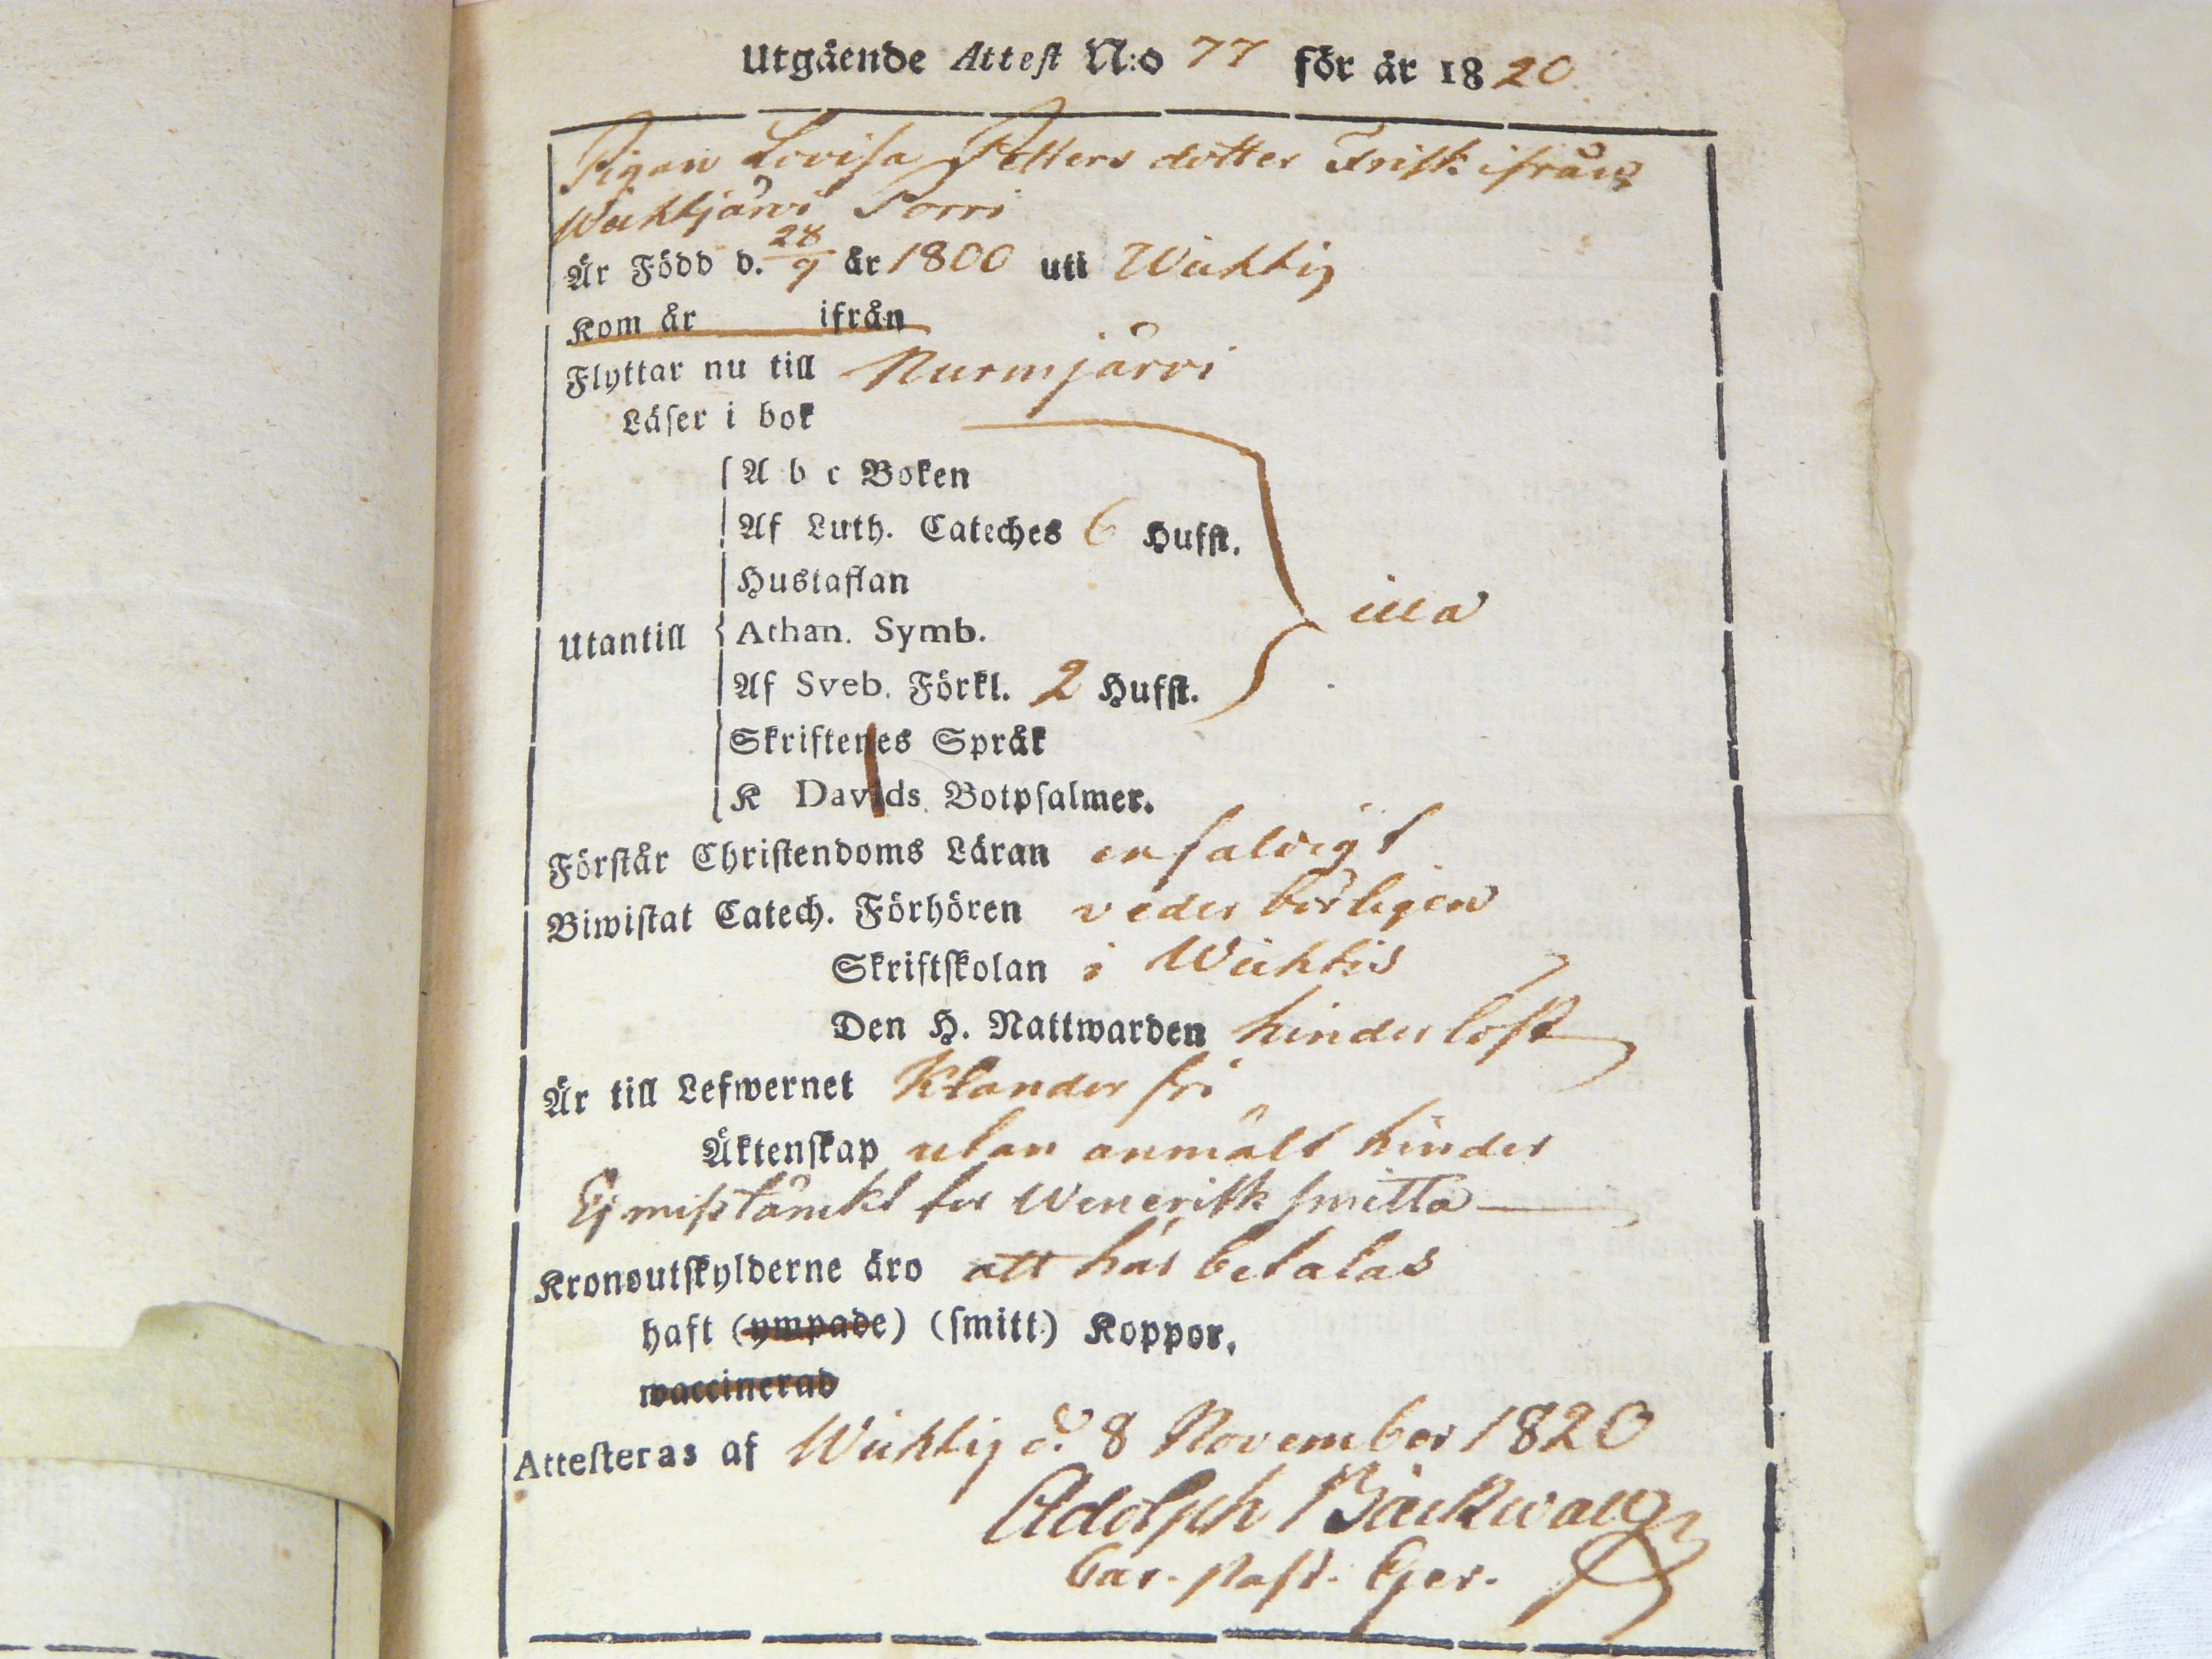 Utgående Attest N:o 77 för år 1820.
Pigan Lovisa Petters dotter Frisk ifrån
Wichtjärvi Sorri
Är Född d. 28/9 år 1800 uti Wichtis
Kom år ifrån
Flyttar nu till Nurmjärvi
Läser i bok
A b c Boken
Af Luth. Cateches 6 Hufst.
Hustaflan
illa
Utantill Athan. Symb.
Af Sveb. Förkl. 2 Hufst.
Skriftenes Språk
K Davids Botpsalmer.
Förstår Christendoms Läran enfaldigt
Biwistat Catech. Förhören vederbörligen
Skriftskolan i Wichtis
Den H. Nattwarden hinderlöst
Är till Lefwernet Klanderfri
Äktenskap utan anmält hinder
Ej misstänckt för Wenerisk smitta
Kronoutskylderne äro att här betalas
haft (ympade) (smitt.) Koppor.
waccinerad
Attesteras af Wichtis d. 8 November 1820
Adolph Bäckwall
Past.